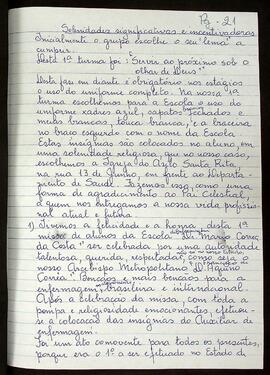 Pg - 21
Solenidades significativas e incentivadoras
Inicialmente o grupo escolhe o seu "lema" a
cumprir.
Desta 1ª turma foi: "Servir ao próximo sob o
olhar de Deus"
Desta fase em diante é obrigatório nos estágios
o uso do uniforme completo. Na nossa 1ª
turma escolhemos para a Escola o uso do
uniforme xadrez azul, sapatos fechados e
meias brancas, touca branca, e a braceira
no braço esquerdo com o nome da Escola
Estas insígnias são colocados no aluno, em
uma solenidade religiosa, que no nosso caso,
escolhemos a Igreja do Asilo Santa Rita,
na rua 13 de Junho, em frente ao Departa-
mento de Saúde. Fizemos isso, como uma
forma de agradecimento ao Pai Celestial,
a quem nos entregamos a nossa vida profissio-
nal atual e futura.
1) Tivemos a felicidade e a honra desta 1ª
missa de alunos da Escola "Dr. Mario Correa
da Costa" ser celebrada por uma autoridade
talentosa, querida, respeitada, como seja o
nosso Arcebispo Metropolitano D. Aquino
Corrêa. Bençãos e mais bençãos para a
enfermagem brasileira e internacional.
Após a celebração da missa, com toda a
pompa e religiosidade emocionantes, efetuou-
se a colocação das insígnias do Auxiliar de
Enfermagem.
Foi um ato comovente para todos os presentes,
porque era o 1º a ser efetuado no Estado de